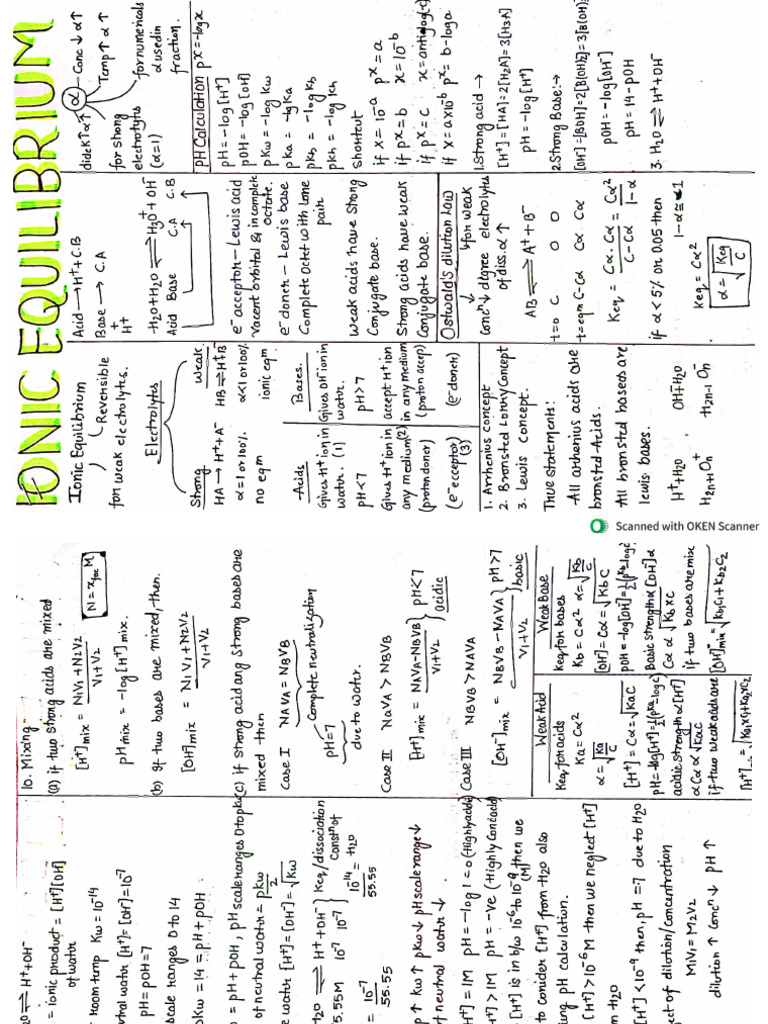 IONIC EQUILIBRIUM
Ionic Equilibrium
Reversible
for weak electrolytes.
Electrolytes
Strong
HA → H⁺+A⁻
α=1 or 100%
no eqm
Weak
HB ⇌ H⁺B⁻
α<1 or 100%
ionic eqm
Acids
Gives H⁺ ion in water. (1)
pH<7
Gives H⁺ ion in any medium (2)
(proton doner)
(e⁻ecceptor) (3)
Bases.
Gives OH⁻ ion in water.
pH>7
accept H⁺ ion in any medium
(proton accep)
(e⁻donor)
1. Arrhenius concept
2. Bronsted Lorry Concept
3. Lewis concept.
True statements:
All arrhenius acids are
bronsted Acids.
All bronsted bases are
lewis bases.
H⁺+H₂O , OH⁻+H₂O
H₂n+1 On⁺ H₂n-1 On⁻
Acid → H⁺+C.B
Base → C.A
+
H⁺
H₂O+H₂O ⇌ H₃O⁺+OH⁻
Acid Base C.A C.B
e⁻acceptor – Lewis acid
Vacent orbital & incomplete
octate.
e⁻donor – Lewis base
Complete Octet with Lone
pair
Weak acids have Strong
Conjugate base.
Strong acids have Weak
Conjugate base.
Ostwald's dilution Law
for weak
Conc↓ degree electrolytes
of diss. α↑
AB ⇌ A⁺+B⁻
t=0 C 0 0
t=eqm C-Cα Cα Cα
Keq = Cα.Cα / C-Cα = Cα² / 1-α
if α<5% or 0.05 then
1-α≈1
Keq = Cα²
α = √Keq/C
α
Conc↓α↑
Temp↑α↑
dielek↑α↑
for strong
electrolytes
(α=1)
for numericals
α used in
fraction.
pH Calculation pX = -logx
pH = -log[H⁺]
pOH = -log[OH]
pKw = -log Kw
pKa = -lgKa
pKb = -log Kb
pKh = -log Kh
Shortcut
if x=10⁻ᵃ pˣ=a
if pˣ=b x=10⁻ᵇ
if, pˣ=c
if x=ax10⁻ᵇ pˣ=b-loga
1. Strong acid →
[H⁺]=[HA]=2[H₂A]=3[H₃A]
pH=-log[H⁺]
2. Strong Base:→
[OH⁻]=[BOH]=2[B(OH)₂]=3[B(OH)₃]
pOH=-log[OH⁻]
pH=14-pOH
3. H₂O ⇌ H⁺+OH⁻
Scanned with OKEN Scanner
⇌ H⁺+OH⁻
= ionic product = [H⁺][OH]
of water
room temp Kw=10⁻¹⁴
[H⁺]=[OH⁻]=10⁻⁷
pH=pOH=7
scale ranges 0 to 14
pKw=14=pH+pOH
= pH+pOH, pH scale ranges 0 to pkw
of neutral water = pkw/2
water [H⁺]=[OH⁻]=√Kw
H₂O ⇌ H⁺+OH⁻
5.55M 10⁻⁷ 10⁻⁷
Keq/dissociation
const of
H₂O
10⁻¹⁴/55.55
= 10⁻⁷/55.55
↑ Kw↑ pKw↓ pH scale range↓
of neutral water ↓.
⁺]=1M pH=-log 1=0 (Highly acidic)
⁺]>1M pH=-ve (Highly Conc acid)
[H⁺] is in b/w 10⁻⁶ to 10⁻⁹ then we
(M)
to consider [H⁺] from H₂O also
pH calculation.
[H⁺]>10⁻⁶M then we neglect [H⁺]
H₂O
[H⁺]<10⁻⁹ then, pH=7 due to H₂O
of dilution/concentration
M₁V₁=M₂V₂
dilution↑ Conc↓ pH↑
10. Mixing
(a) if two strong acids are mixed
[H⁺]mix = N₁V₁+N₂V₂ / V₁+V₂
pH mix = -log[H⁺]mix.
(b) If two bases are mixed, then.
[OH⁻]mix = N₁V₁+N₂V₂ / V₁+V₂
(c) if strong acid and strong bases are
mixed then
Case I NAVA=NBVB
Complete neutralisation
pH=7
due to water.
Case II NAVA>NBVB
[H⁺]mix = NAVA-NBVB / V₁+V₂ } pH<7
acidic
Case III NBVB>NAVA
[OH⁻]mix = NBVB-NAVA / V₁+V₂ } pH>7
basic
Weak Acid
Keq for acids
Ka=Cα²
α=√Ka/C
[H⁺]=Cα=√KaC
pH=-log[H⁺]=½(pKa-logc)
acidic strength α [H⁺]
αCα α√KaC
if two weak acids are
Weak Base
Keq for bases
Kb=Cα² α=√Kb/C
[OH⁻]=Cα=√KbC
Basic strength α [OH⁻] α
Cα α √KbxC
if two bases are mix
[OH⁻]mix=√Kb₁C₁+Kb₂C₂